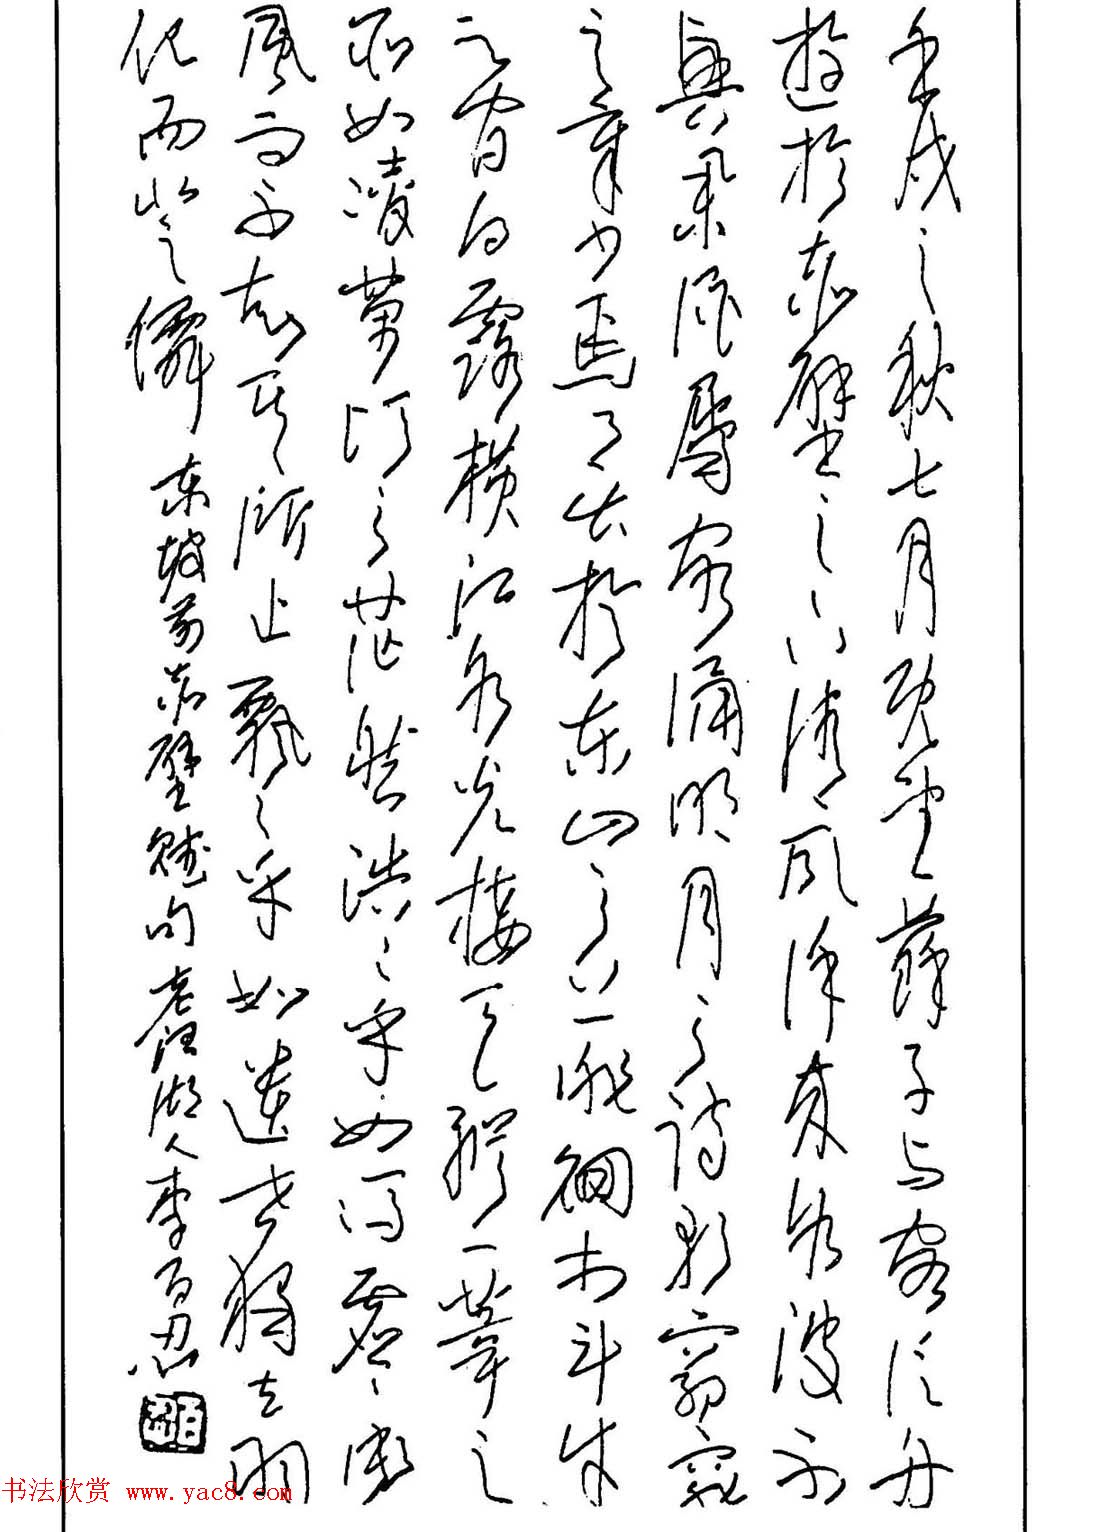 壬戌之秋七月既望蘇子与客泛舟
遊於赤壁之下清风徐来水波不
興举酒属客诵明月之诗歌窈窕
之章少焉月出於东山之上徘徊於斗牛
之间白露横江水光接天纵一苇之
所如凌萬顷之茫然浩々乎如冯虚御
风而不知其所止飘々乎如遗世独立羽
化而登僊 东坡前赤壁赋句 老汪湖人李百忍
百忍
书法欣赏 www.yac8.com